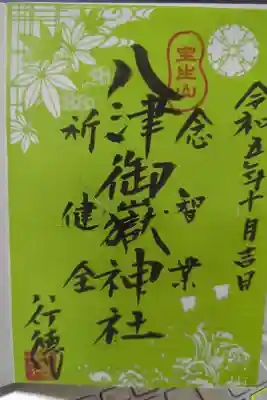 令和五年十月吉日
室生山
念智業
八津御嶽神社
祈健全
行徳